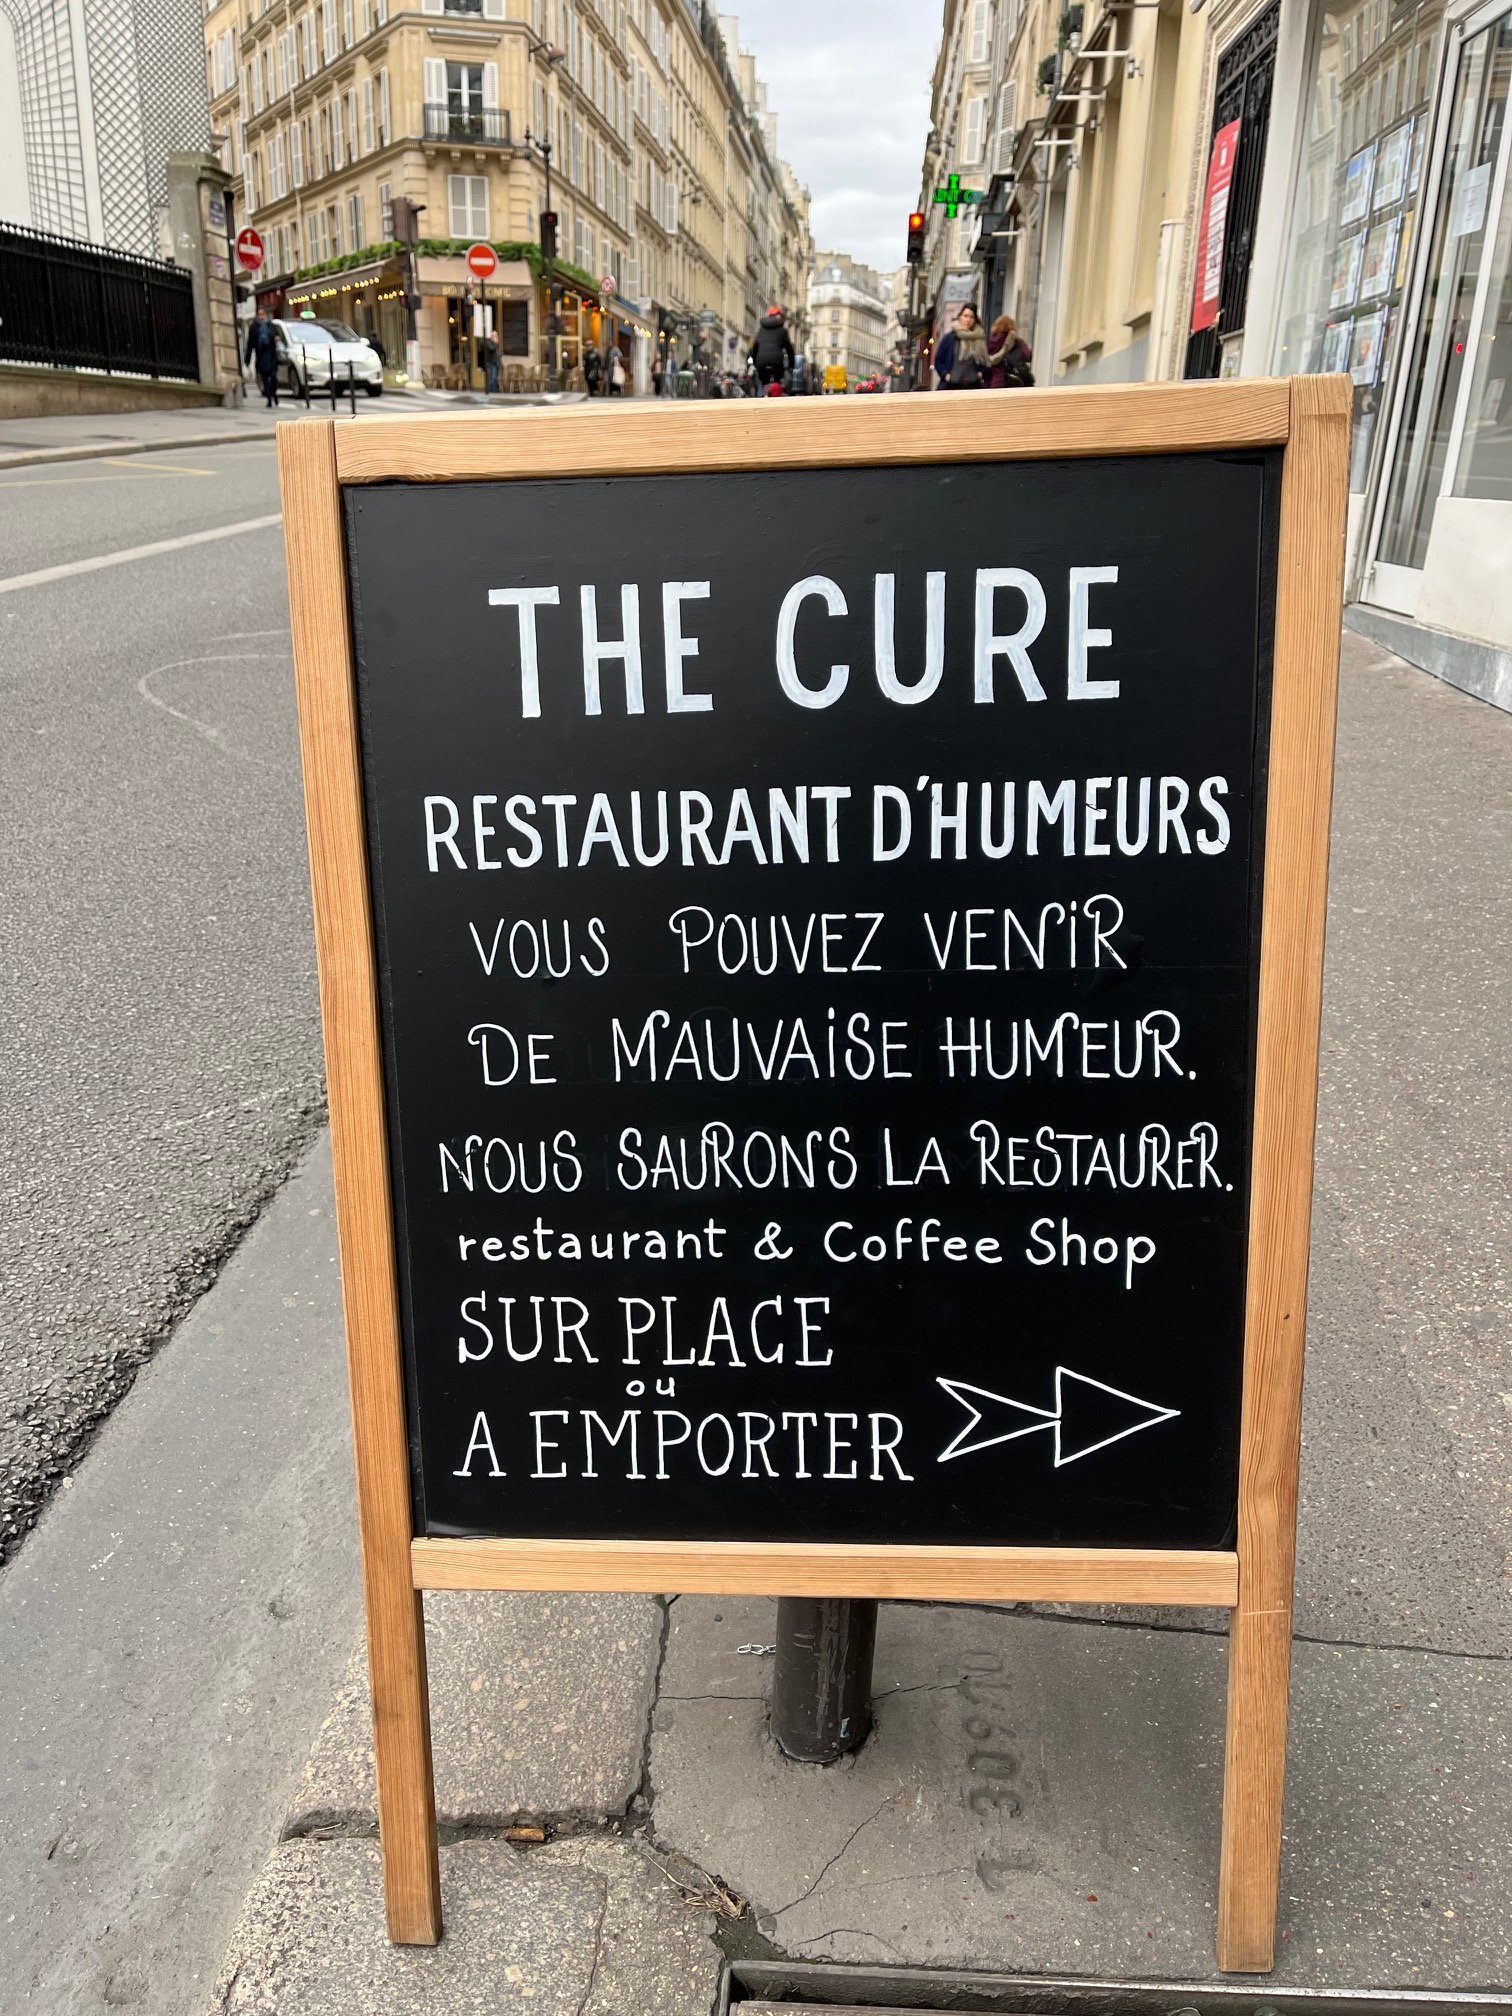 THE CURE
RESTAURANT D'HUMEURS
VOUS POUVEZ VENIR
DE MAUVAISE HUMEUR.
NOUS SAURONS LA RESTAURER.
restaurant & Coffee Shop
SUR PLACE
ou
A EMPORTER